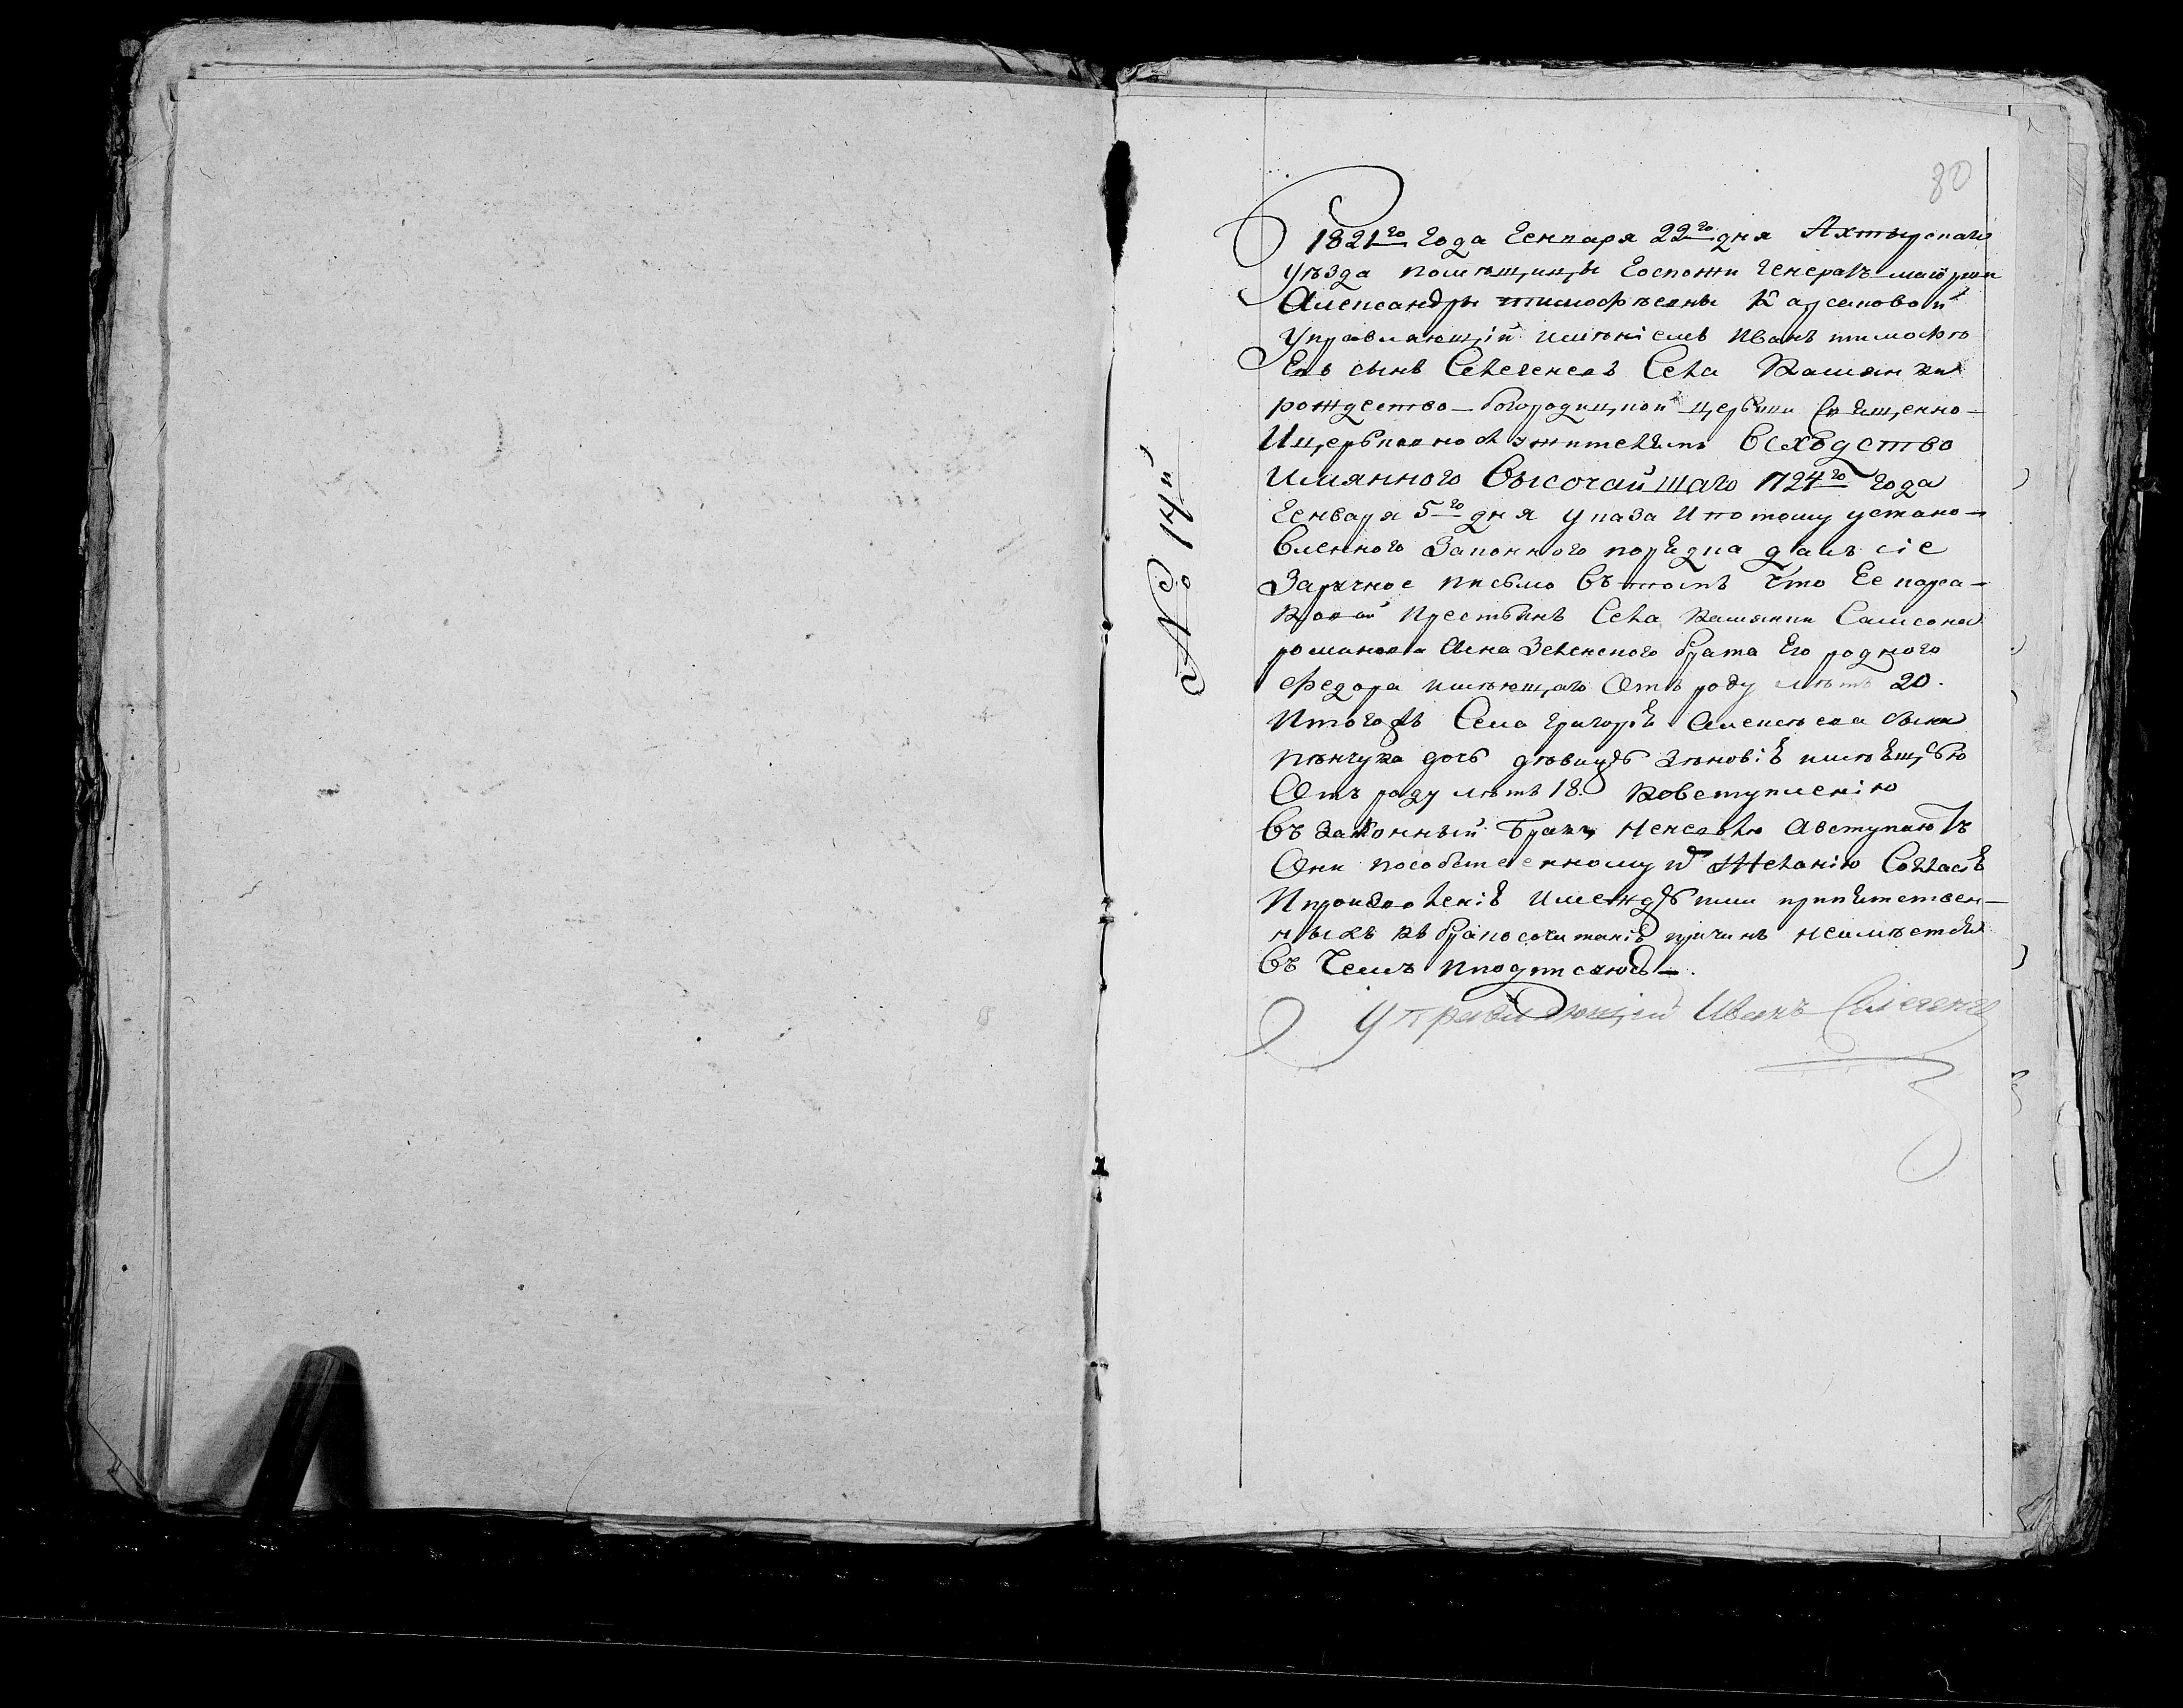 80
1821го года Генваря 22го дня Ахтырскаго
уѣзда помѣщицы Госпожи Генералъ-маіорши
Александры тимофѣевны Карсаковой
управляющій имѣніемъ Иванъ тимофѣ
Евъ сынъ Селегеневъ Села Камянки
рождество-богородицкой церьвки Священно-
Ицерьковнослужителямъ Всходство
Имяннаго Высочайшаго 1724го года
Генваря 5го дня указа Ипотому устано-
вленного Законного порядка далъ сіе
Заручное письмо Въ томъ что Ее карса-
ковой крестьянъ Села Камянки Самсона
романова сына Зеленского брата Его родного
Федора имѣющаго Отъ роду лѣтъ 20.
Итогожъ Села григорія Алексѣева сына
дочь дѣвицу Зѣновію имѣющую
Отъ роду лѣтъ 18. Ковступленію
Въ законный Бракъ Авступаютъ
Они пособственному их Желанію Согласію
Ипроизволенію Имеждъ ими припятствен-
ныхъ къ бракосочитанію причинъ неимѣется
Въ Чемъ иподписаюсь-.
Управляющей Иванъ Селегенев
№ 14й